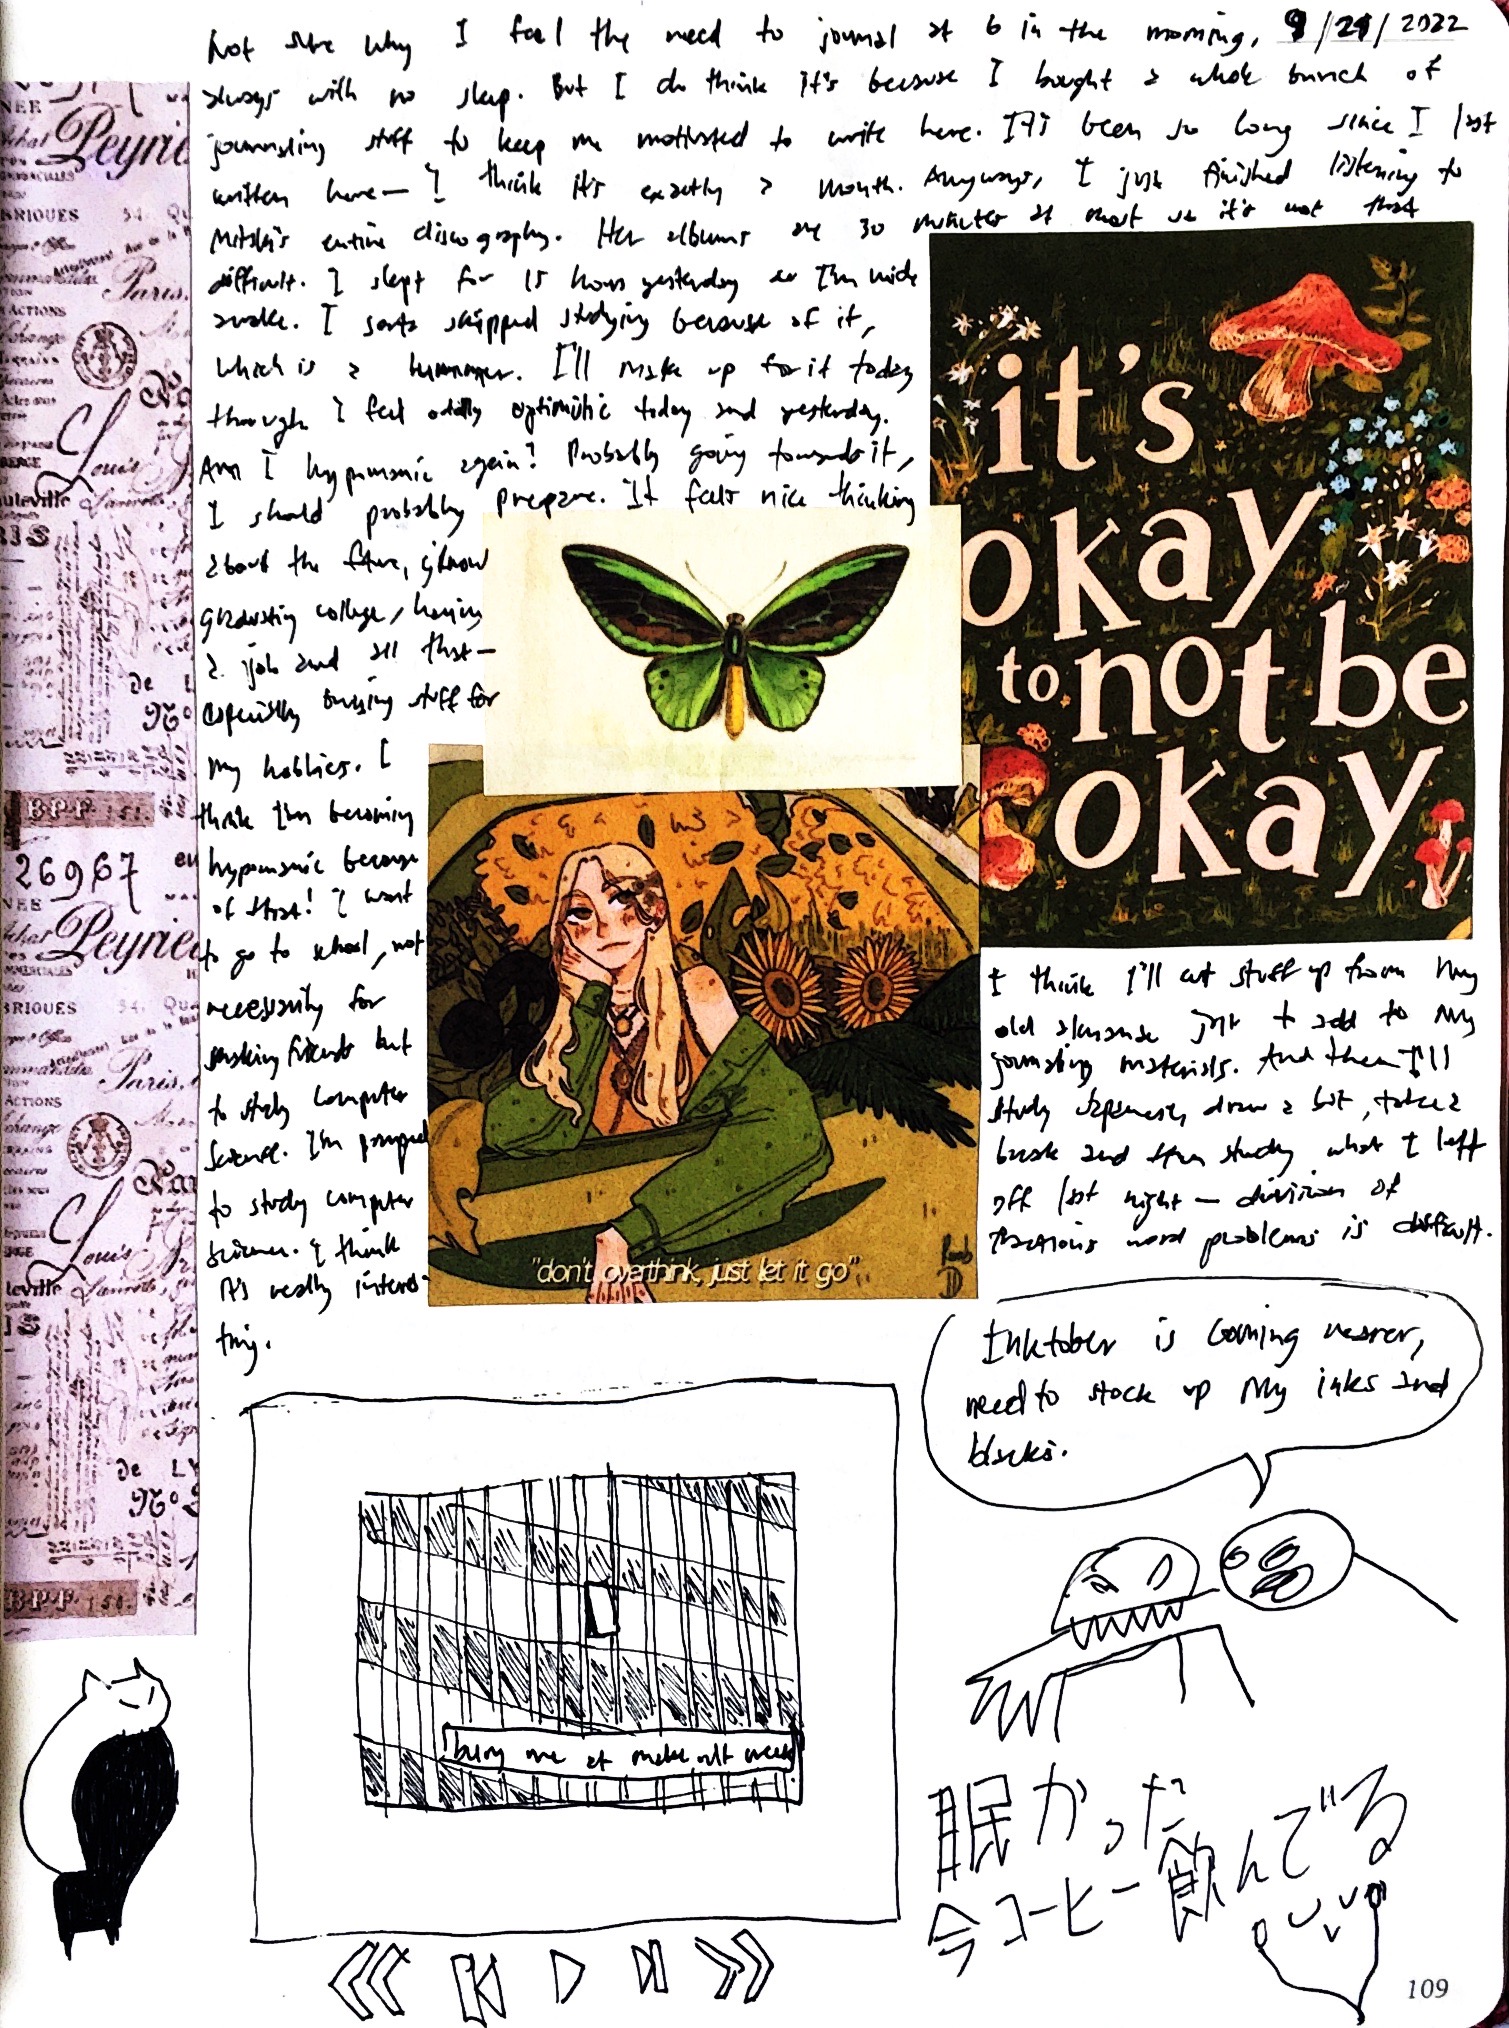 Not sure why I feel the need to journal at 6 in the morning, 9/29/2022
always with no sleep. But I do think it's because I bought a whole bunch of
journaling stuff to keep me motivated to write here. It's been so long since I last
written here— I think it's exactly a month. Anyways, I just finished listening to
Mitski's entire discography. Her albums are 30 minutes at most so it's not that
difficult. I slept for 15 hours yesterday so I'm wide
awake. I sorta skipped studying because of it,
which is a . I'll make up for it today
though. I feel oddly optimistic today and yesterday.
Am I hypomanic again? Probably going towards it,
I should probably prepare. It feels nice thinking
about the future, y'know
graduating college, having
a job and all that—
especially buying stuff for
my hobbies. I
think I'm becoming
hypomanic because
of that! I want
to go to school, not
necessarily for
making friends but
to study computer
science. I'm pumped
to study computer
science. I think
it's really interes-
ting.
it's
okay
to not be
okay
"don't overthink, just let it go"
I think I'll cut stuff up from my
old almanac just to add to my
journaling materials. And then I'll
study Japanese, draw a bit, take a
break and then study what I left
off last night — division of
fractions word problems is difficult.
Inktober is coming nearer,
need to stock up my inks and
blacks.
bury me at makeout creek
眠かった
今コーヒー飲んでる
Peyrie
BRIQUES
Paris.
ACTIONS
Change
Louis
uteville
B.P.F.
26967
Peyrie
BRIQUES
Paris.
ACTIONS
Change
Louis
leville
B.P.F.
109